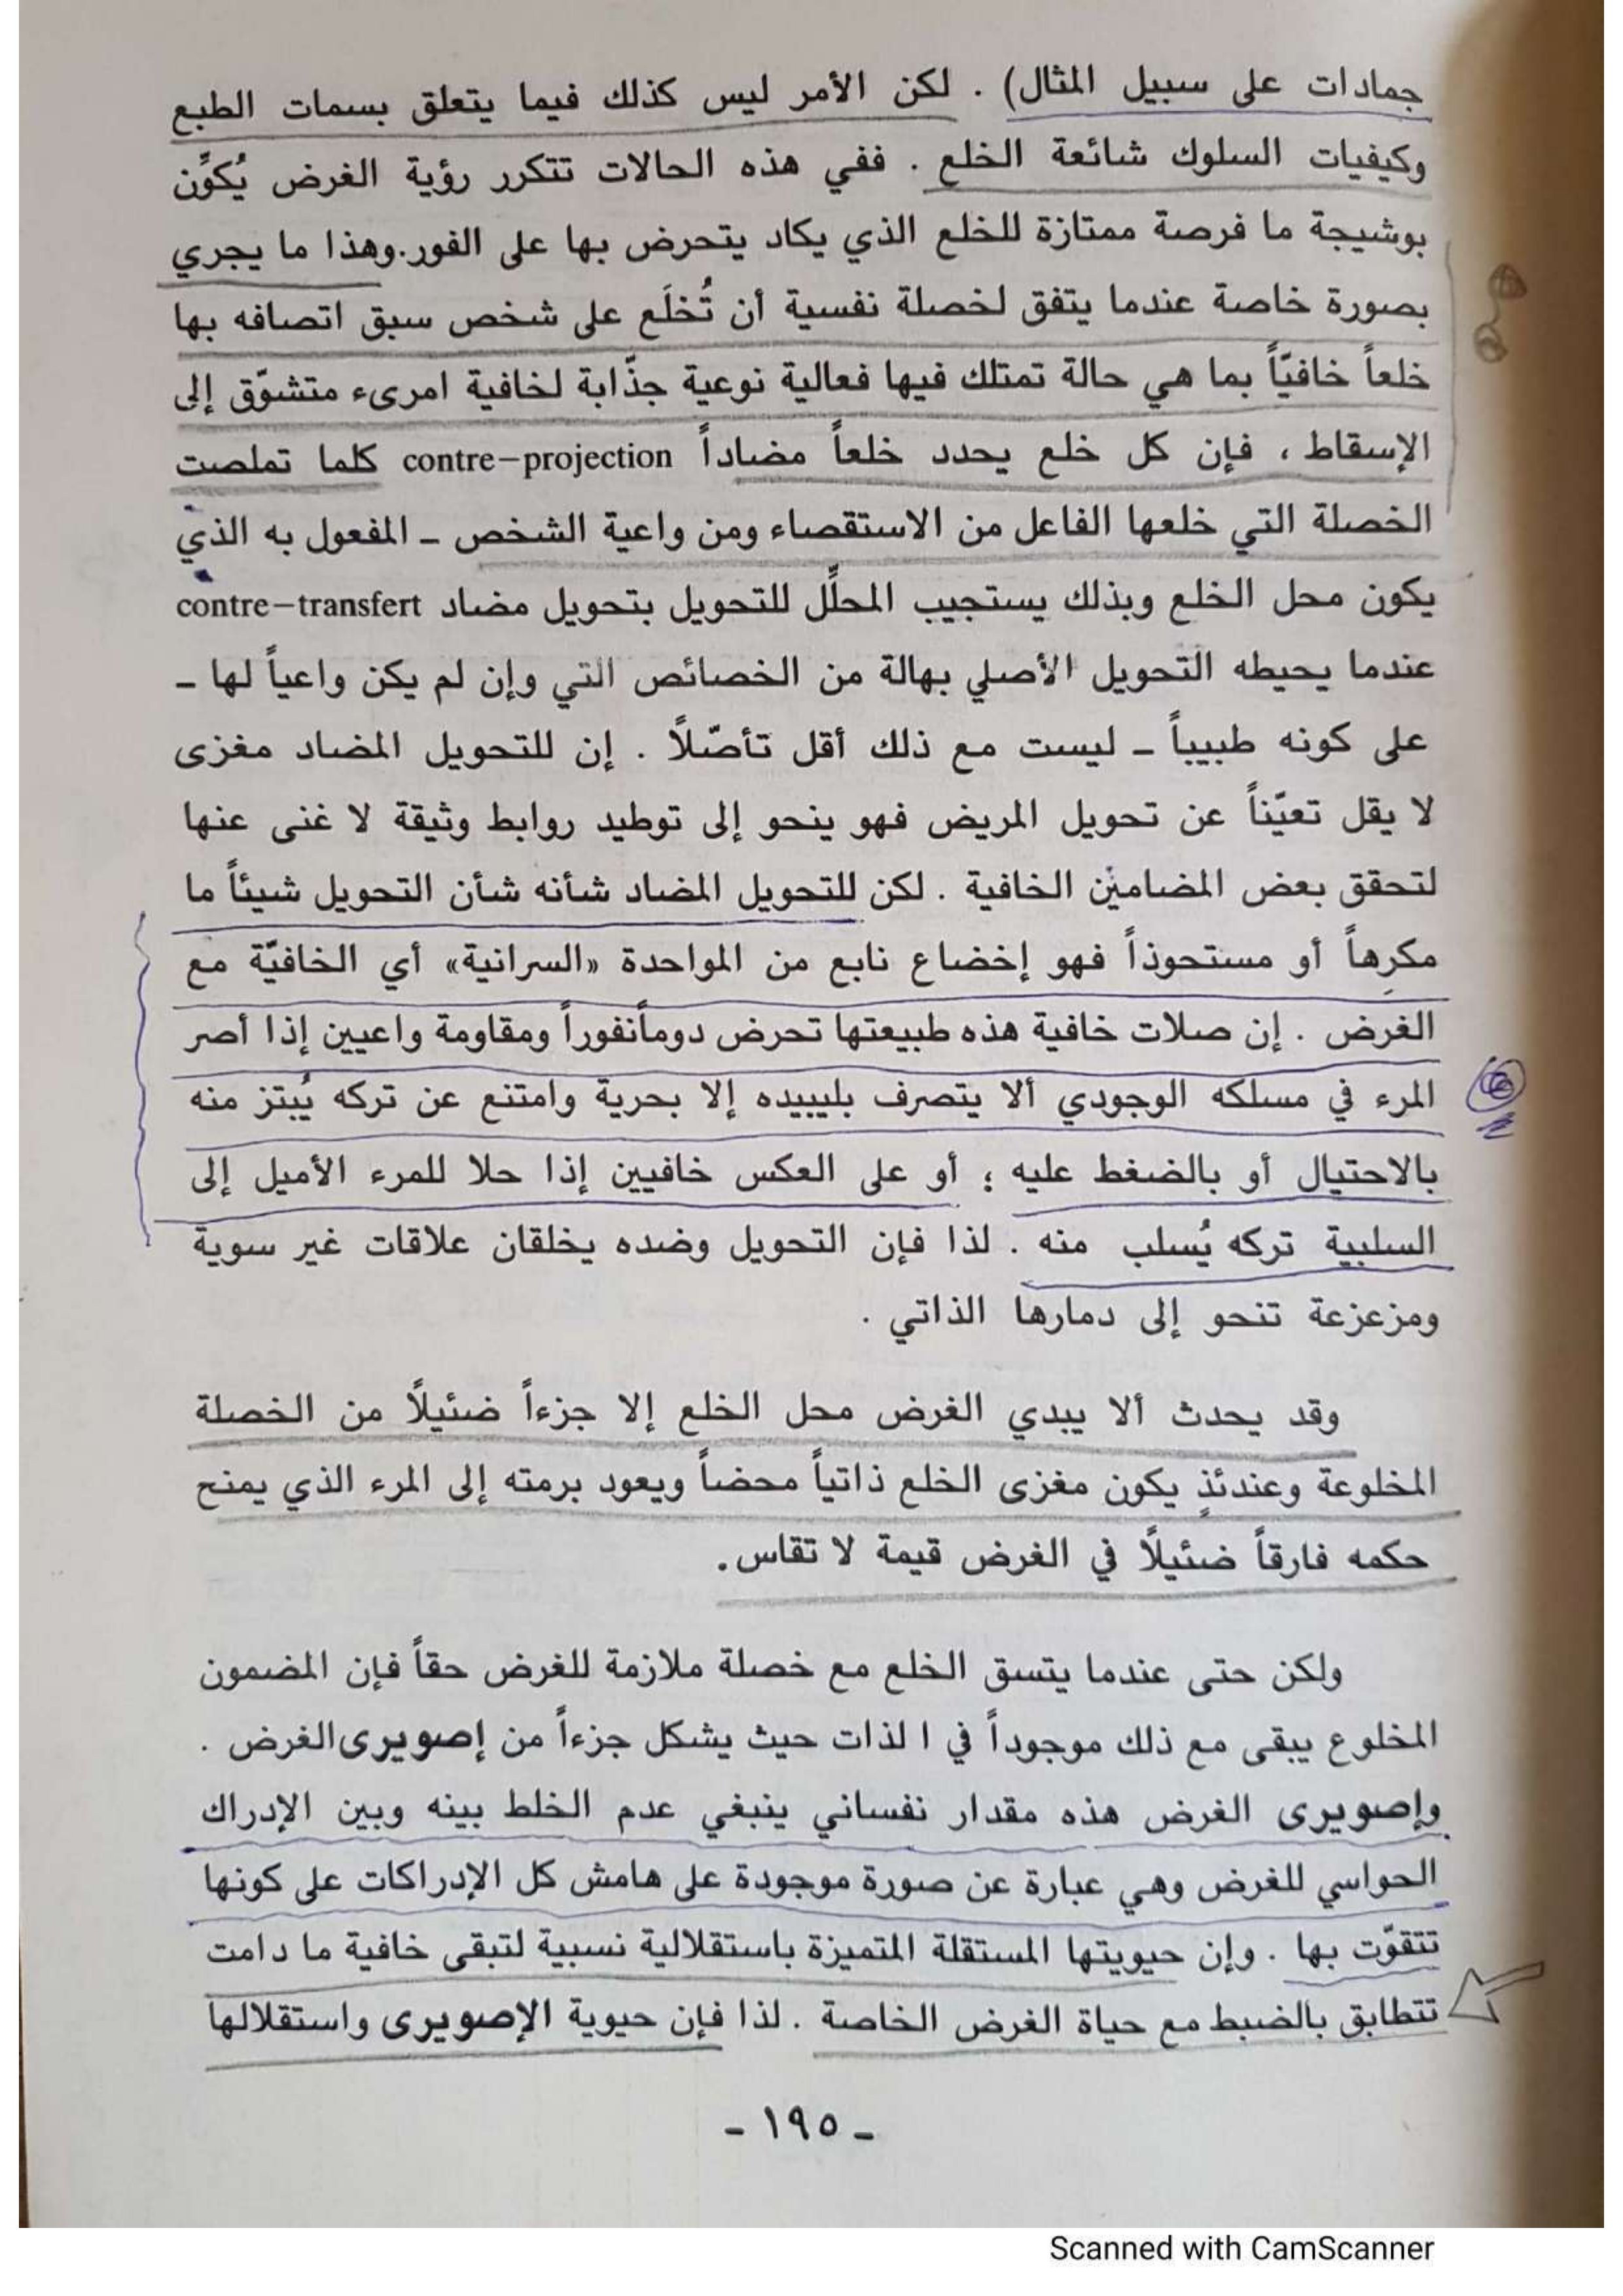 جمادات على سبيل المثال) . لكن الأمر ليس كذلك فيما يتعلق بسمات الطبع
وكيفيات السلوك شائعة الخلع . ففي هذه الحالات تتكرر رؤية الغرض يُكوِّن
بوشيجة ما فرصة ممتازة للخلع الذي يكاد يتحرض بها على الفور.وهذا ما يجري
بصورة خاصة عندما يتفق لخصلة نفسية أن تُخلَع على شخص سبق اتصافه بها
خلعاً خافيّاً بما هي حالة تمتلك فيها فعالية نوعية جذّابة لخافية امرىء متشوّق إلى
الإسقاط ، فإن كل خلع يحدد خلعاً مضاداً contre–projection كلما تملصت
الخصلة التي خلعها الفاعل من الاستقصاء ومن واعية الشخص ـ المفعول به الذي
يكون محل الخلع وبذلك يستجيب المحلِّل للتحويل بتحويل مضاد contre–transfert
عندما يحيطه التحويل الأصلي بهالة من الخصائص التي وإن لم يكن واعياً لها ـ
على كونه طبيباً ـ ليست مع ذلك أقل تأصّلاً . إن للتحويل المضاد مغزى
لا يقل تعيّناً عن تحويل المريض فهو ينحو إلى توطيد روابط وثيقة لا غنى عنها
لتحقق بعض المضامين الخافية . لكن للتحويل المضاد شأنه شأن التحويل شيئاً ما
مكرِهاً أو مستحوذاً فهو إخضاع نابع من المواحدة «السرانية» أي الخافيّة مع
الغرض . إن صلات خافية هذه طبيعتها تحرض دومأنفوراً ومقاومة واعيين إذا أصر
المرء في مسلكه الوجودي ألا يتصرف بليبيده إلا بحرية وامتنع عن تركه يُبتز منه
بالاحتيال أو بالضغط عليه ؛ أو على العكس خافيين إذا حلا للمرء الأميل إلى
السلبية تركه يُسلب منه . لذا فإن التحويل وضده يخلقان علاقات غير سوية
ومزعزعة تنحو إلى دمارها الذاتي .
وقد يحدث ألا يبدي الغرض محل الخلع إلا جزءاً ضئيلاً من الخصلة
المخلوعة وعندئذٍ يكون مغزى الخلع ذاتياً محضاً ويعود برمته إلى المرء الذي يمنح
حكمه فارقاً ضئيلاً في الغرض قيمة لا تقاس.
ولكن حتى عندما يتسق الخلع مع خصلة ملازمة للغرض حقاً فإن المضمون
المخلوع يبقى مع ذلك موجوداً في ا لذات حيث يشكل جزءاً من إصويرى الغرض .
وإصويرى الغرض هذه مقدار نفساني ينبغي عدم الخلط بينه وبين الإدراك
الحواسي للغرض وهي عبارة عن صورة موجودة على هامش كل الإدراكات على كونها
تتقوّت بها . وإن حيويتها المستقلة المتميزة باستقلالية نسبية لتبقى خافية ما دامت
تتطابق بالضبط مع حياة الغرض الخاصة . لذا فإن حيوية الإصويرى واستقلالها
ـ ١٩٥ ـ
Scanned with CamScanner